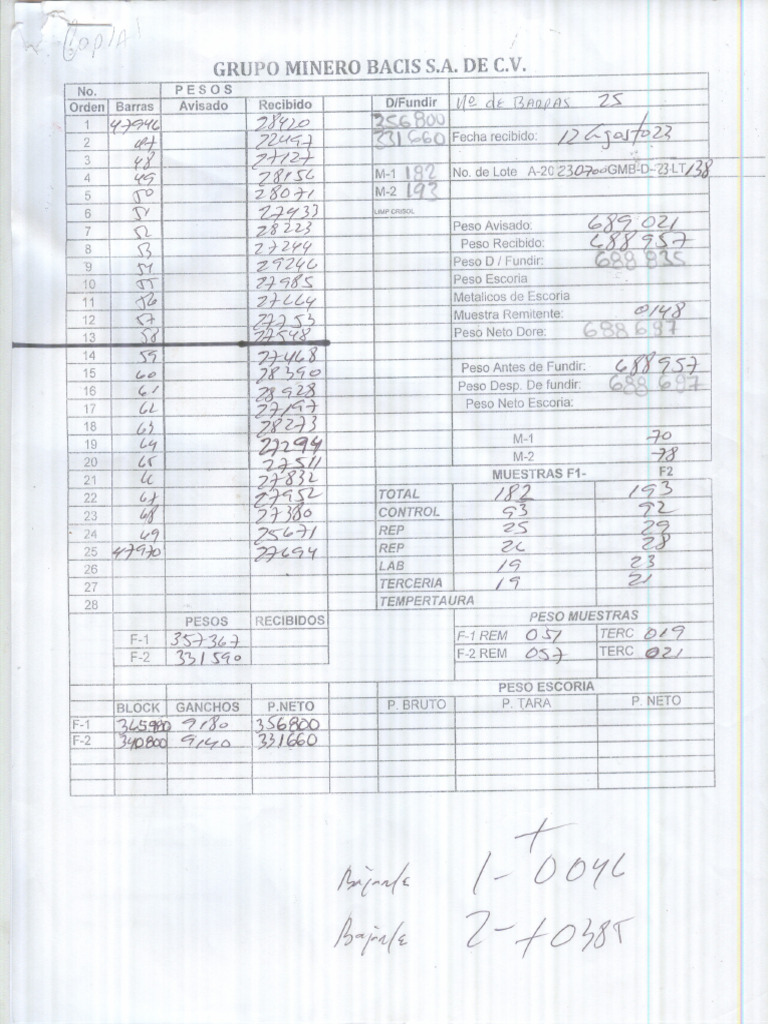 Copia
GRUPO MINERO BACIS S.A. DE C.V.
No. PESOS
Orden Barras Avisado Recibido D/Fundir Nº de BARRAS 25
1 47946 28420 356800
2 47 22497 331660 Fecha recibido: 12 Agosto 23
3 48 27127
4 49 28156 M-1 182 No. de Lote A-20230700GMB-D-23-LT138
5 50 28071 M-2 193
6 51 27433 LIMP CRISOL
7 52 28223 Peso Avisado: 689 021
8 53 27244 Peso Recibido: 688 957
9 54 29246 Peso D / Fundir: 688 835
10 55 27985 Peso Escoria
11 56 27664 Metalicos de Escoria
12 57 27753 Muestra Remitente: 0148
13 58 27548 Peso Neto Dore: 688 687
14 59 27468
15 60 28390 Peso Antes de Fundir: 688957
16 61 28928 Peso Desp. De fundir: 688 687
17 62 27197 Peso Neto Escoria:
18 63 28273
19 64 27294 M-1 70
20 65 27511 M-2 78
21 66 27832 MUESTRAS F1- F2
22 67 27952 TOTAL 182 193
23 68 27380 CONTROL 93 92
24 69 25671 REP 25 29
25 47970 27694 REP 26 28
26 LAB 19 23
27 TERCERIA 19 21
28 TEMPERTAURA
PESOS RECIBIDOS PESO MUESTRAS
F-1 357367 F-1 REM 051 TERC 019
F-2 331590 F-2 REM 057 TERC 021
PESO ESCORIA
BLOCK GANCHOS P.NETO P. BRUTO P. TARA P. NETO
F-1 365980 9180 356800
F-2 340800 9140 331660
+
Bajarle 1- 0046
Bajarle 2- +0385